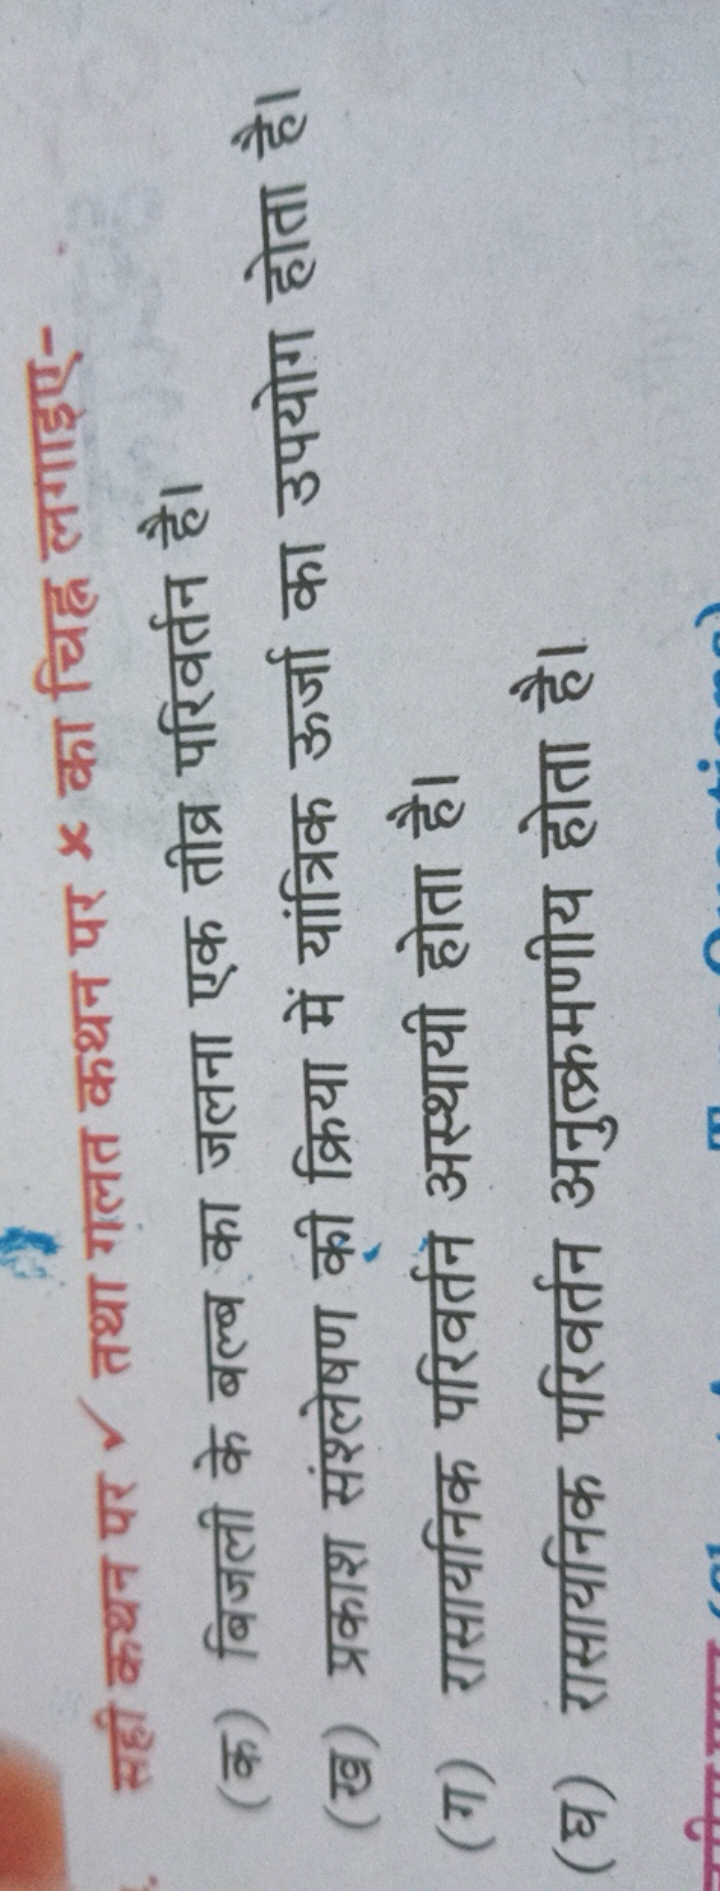 सही कथन पर ✓ तथा गलत कथन पर × का चिह्न लगाइए-
(क) बिजली के बल्ब का जलना एक तीव्र परिवर्तन है।
(ख) प्रकाश संश्लेषण की क्रिया में यांत्रिक ऊर्जा का उपयोग होता है।
(ग) रासायनिक परिवर्तन अस्थायी होता है।
(घ) रासायनिक परिवर्तन अनुत्क्रमणीय होता है।